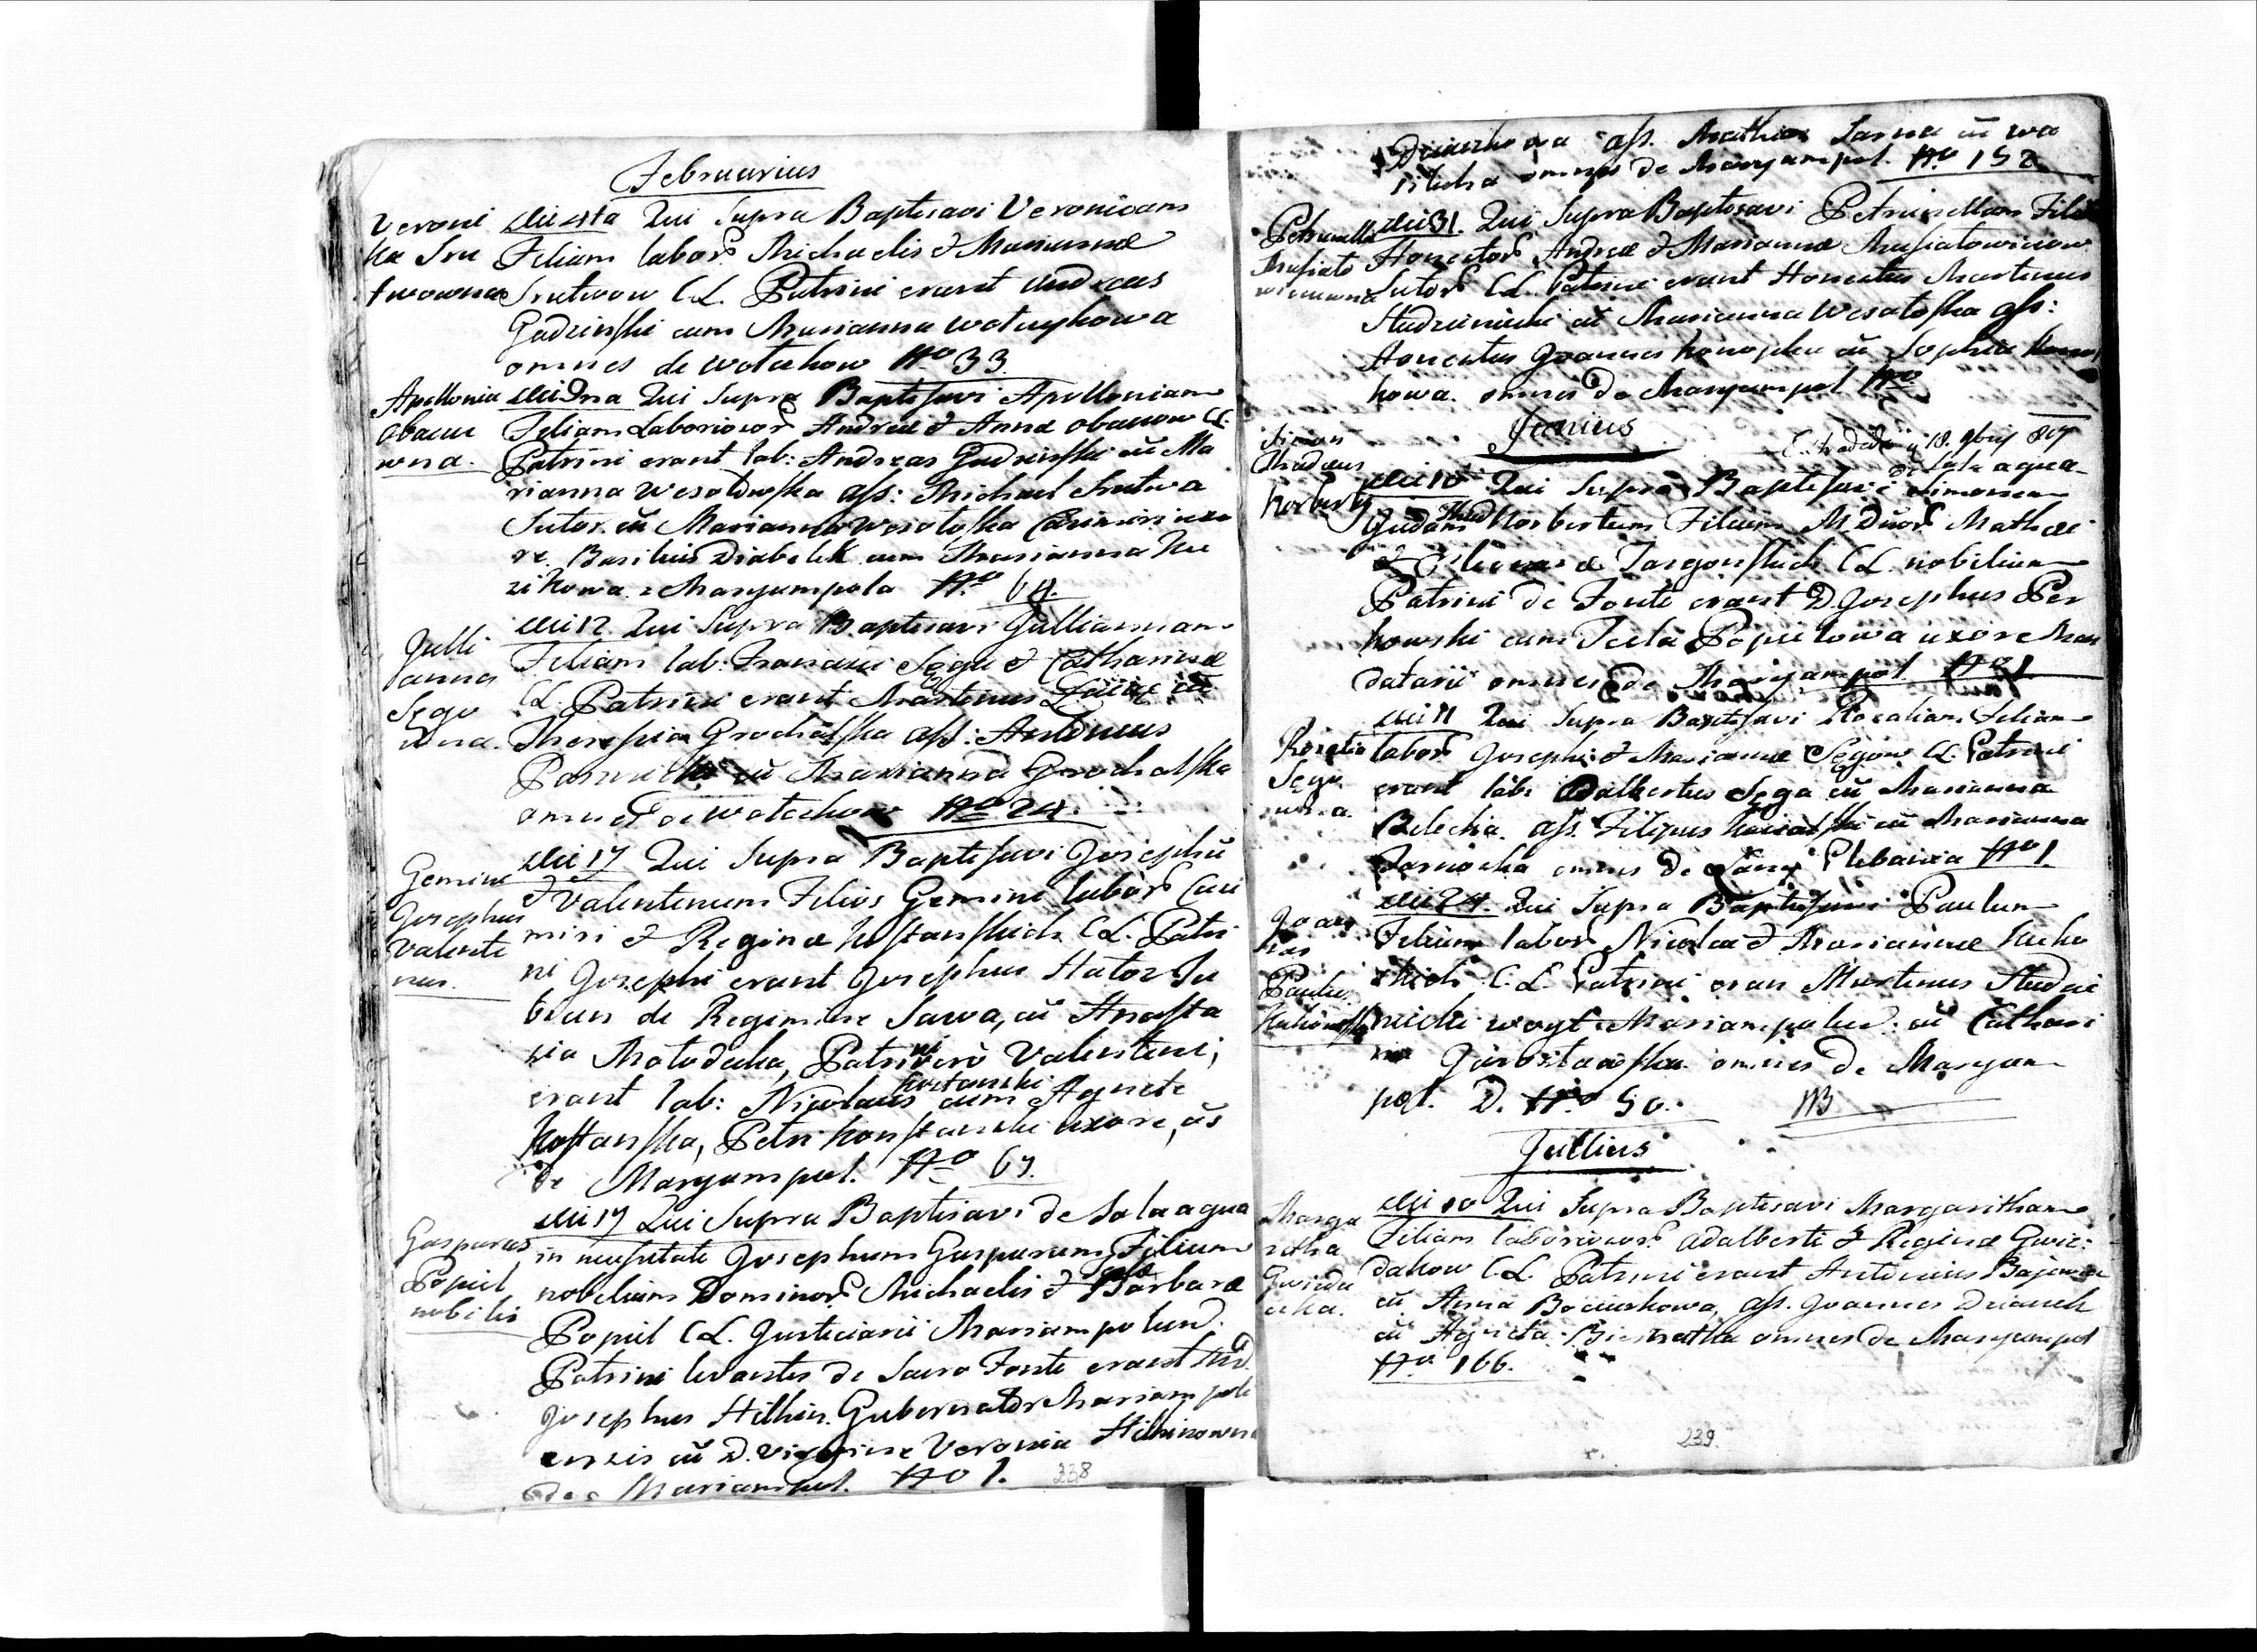 Februarius
Veroni
ka Sru
twowna
die 4ta Qui Supra Baptisavi Veronicam
Filiam labor. Michaelis & Marianna
Srutwow C.L. Patrini erant Andreas
Gadzinski cum Marianna Wotczykowa
omnes de Wotczkow No 33
Apollonia
Obacu
wna.
die Qui Supra Baptisavi Apolloniam
Filiam Laborioror. Andreæ & Anna Obacuow CL.
Patrini erant lab: Andreas Gadzinski cū Ma
rianna Wesolowska ass: Michael Srutwa
Sutor cū Marianna Wesołoska
re. Basilius Diabelek cum Marianna Ku
zikowa z Maryampola No 64.
Julli
anna
Sęgo
wna.
die 12 Qui Supra Baptisavi Julliannam
Filiam lab: Francisci Sęga & Catharinæ
CL Patrini erant Martinus cū
Theressia Grochalska ass: Antonius
cū Marianna Grochalska
omnes de Wotczkow No 24.
Gemini
Josephus
Valenti
nus.
die 17 Qui Supra Baptisavi Josephū
& Valentinum Filios Gemini labor. Casi
miri & Reginæ Kostanskich CL. Patri
ni Josephi erant Josephus Hator Ju
bean de Regimine Sawa, cū Anasta
zia Motodecka, Patrini vero Valentini,
erant lab: Nicolaus Kostanski cum Agnete
Kostanska, Petri Konstanski uxore, oēs
de Maryampol. No 67.
Gasparus
Popiel
nobilis
die 17 Qui Supra Baptisavi de Sola aqua
in necessitate Josephum Gasparum Filium
nobilium Dominor. Michaelis & Barbaræ
Popiel CL. Justiciarii Mariampolien.
Patrini levantes de Sacro Fonte erant
Josephus Hilkin. Gubernator Mariampoli
ensis cū D. virgine Veronia Hilkinowna
de Mariampol. No 1. 238
ass. Mathias Sarna cū Wa
silicha omnes de Maryampol. No 152.
Petrunella
Musiato
wiczowna
die 31. Qui Supra Baptisavi Petrunellam Filiā
Honestor. Andreæ & Mariannæ Musiatowiczow
Sutor. CL. Patrini erant Honestus Martinus
Studzienicki cū Marianna Wesołoska ass:
Honestus Joannes Konopka cū Sophia
kowa. omnes de Maryampol No
Junius
Extradidi 18. 9bris 817
de Sola aqua
Simon
Thadæus
Norberty
die 10 Qui Supra Baptisavi Simonem
Judam Thad Norbertum Filium M. Dnor. Mathæi
& Targonskich CL. nobilium
Patrini de Fonte erant D. Josephus Per
kowski cum Tecla Popielowa uxore Man
datarii omnes de Maryampol No 1
Rozalia
Sęgo
wna.
die 11 Qui Supra Baptisavi Rosaliam Filiam
labor. Josephi & Mariannæ Sęgow CL. Patrini
erant lab: Adalbertus Sęga cū Marianna
Belecha. ass. Filipus cū Marianna
omnes de Plebania No 1.
Paulus
die 24. Qui Supra Baptisavi Paulum
Filium labor. Nicolai & Mariannæ Kuko
skich C.L. Patrini eran Martinus Studzie
nicki woyt Mariampolien. cū Cathari
na Jarosławska omnes de Maryam
pol. D. No 50. NB
Jullius
Marga
ritha
Gwizda
cka.
die 10 Qui Supra Baptisavi Margaritham
Filiam laborioror. Adalberti & Reginæ Gwiz:
dakow C.L. Patrini erant Antonius
cū Anna Bociurkowa, ass. Joannes
cū Agneta omnes de Maryampol
No. 166.
239.